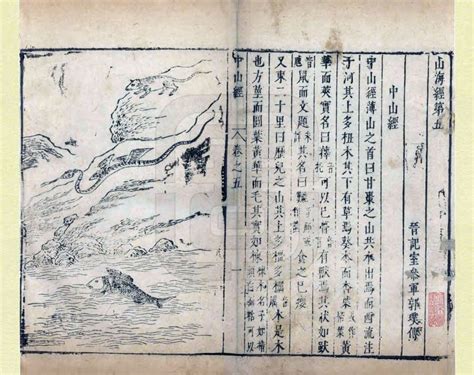 山海經第五
晉記室參軍郭璞傳
中山經
中山經薄山之首曰甘棗之山共水出焉而西流注
于河其上多杻木其下有草焉葵本而杏葉黃
華而莢實名曰籜可以已瞢有獸焉其狀如
鼠而文題其名曰食之已癭
又東二十里曰歷兒之山其上多橿多櫔木是木
也方莖而圓葉黃華而毛其實如楝
中山經
卷之五
一